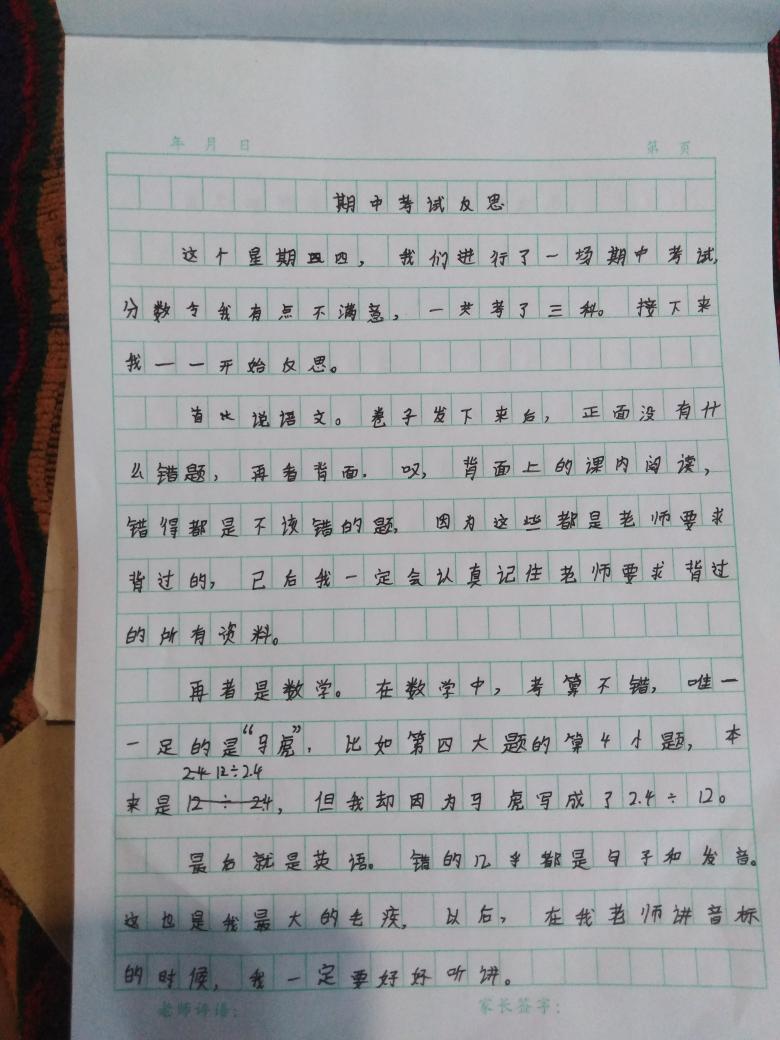 年 月 日 第 页
期中考试反思
这个星期四，我们进行了一场期中考试，
分数令我有点不满意，一共考了三科。接下来
我一一开始反思。
首比说语文。卷子发下来后，正面没有什
么错题，再看背面．哎，背面上的课内阅读，
错得都是不该错的题，因为这些都是老师要求
背过的，已后我一定会认真记住老师要求背过
的所有资料。
再者是数学。在数学中，考算不错，唯一
一足的是“马虎”，比如第四大题的第4小题，本
2.4 12÷2.4
来是12÷24，但我却因为马虎写成了2.4÷12。
最后就是英语。错的几乎都是句子和发音。
这也是我最大的毛疾，以后，在我老师讲音标
的时候，我一定要好好听讲。
老师评语： 家长签字：